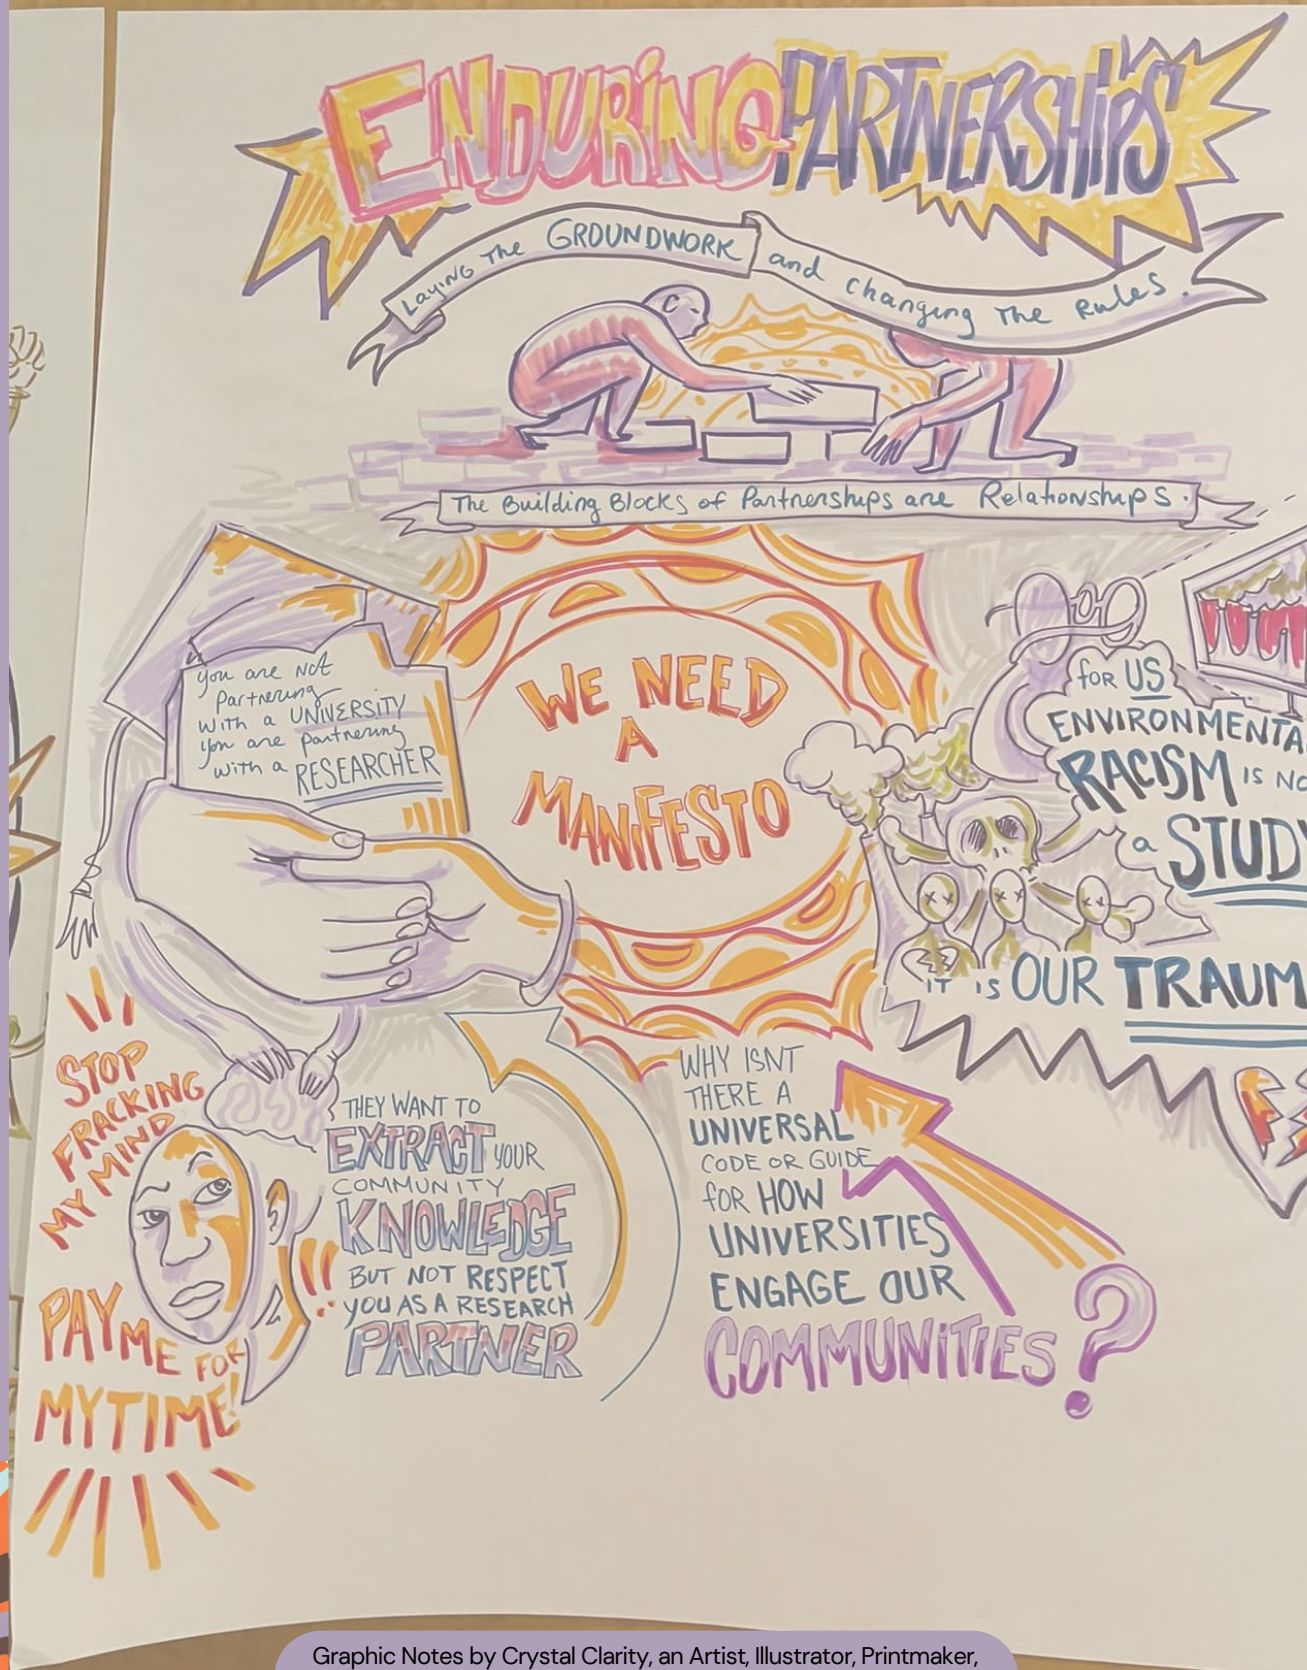 ENDURING PARTNERSHIPS
Laying the GROUNDWORK and changing the Rules.
The Building Blocks of Partnerships are Relationships.
you are not
partnering
with a UNIVERSITY
you are partnering
with a RESEARCHER
WE NEED
A
MANIFESTO
for US
ENVIRONMENTA
RACISM IS NO
a STUDY
IT IS OUR TRAUM
STOP
FRACKING
MY MIND
PAY ME FOR
MY TIME!
THEY WANT TO
EXTRACT YOUR
COMMUNITY
KNOWLEDGE
BUT NOT RESPECT
YOU AS A RESEARCH
PARTNER
WHY ISNT
THERE A
UNIVERSAL
CODE OR GUIDE
for HOW
UNIVERSITIES
ENGAGE OUR
COMMUNITIES?
Graphic Notes by Crystal Clarity, an Artist, Illustrator, Printmaker,